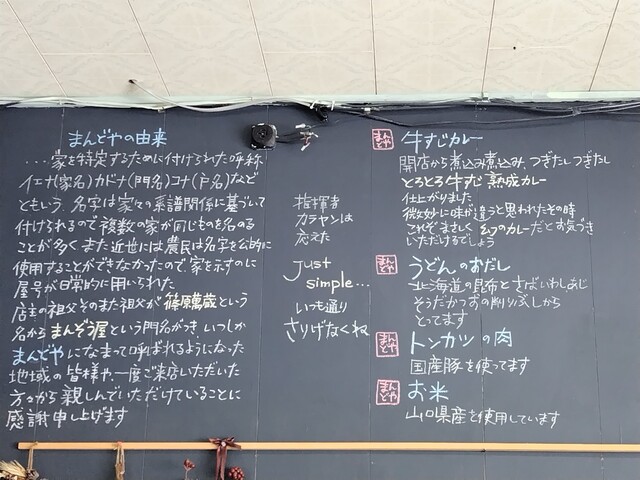 まんどやの由来
...家を特定するために付けられた呼称
イエナ(家名)カドナ(門名)コナ(戸名)など
ともいう。名字は家々の系譜関係に基づいて
付けられるので複数の家が同じものを名のる
ことが多くまた近世には農民は名字を公的に
使用することができなかったので、家を示すのに
屋号が日常的に用いられた
店主の祖父そのまた祖父が篠原萬歳という
名からまんぞう屋という門名がつき、いつしか
まんどやになまって呼ばれるようになった
地域の皆様や、一度ご来店いただいた
方々から親しんでいただけていることに
感謝申し上げます
指揮者
カラヤンは
応えた
Just
simple...
いつも通り
さりげなくね
まんどや
牛すじカレー
開店から煮込み煮込み、つぎたしつぎたし
とろとろ牛すじ熟成カレー
仕上がりました
微妙に味が違うと思われたその時
これぞまさしく幻のカレーだとお気づき
いただけるでしょう
まんどや
うどんのおだし
北海道の昆布とさばいわしあじ
そうだかつおの削りぶしから
とってます
まんどや
トンカツの肉
国産豚を使ってます
まんどや
お米
山口県産を使用しています